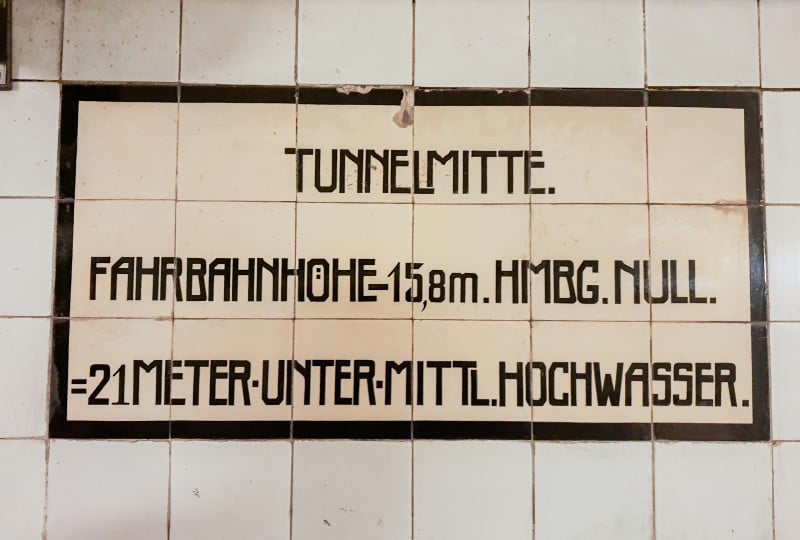 TUNNELMITTE.
FAHRBAHNHÖHE-15,8m.HMBG.NULL.
=21METER·UNTER·MITTL.HOCHWASSER.